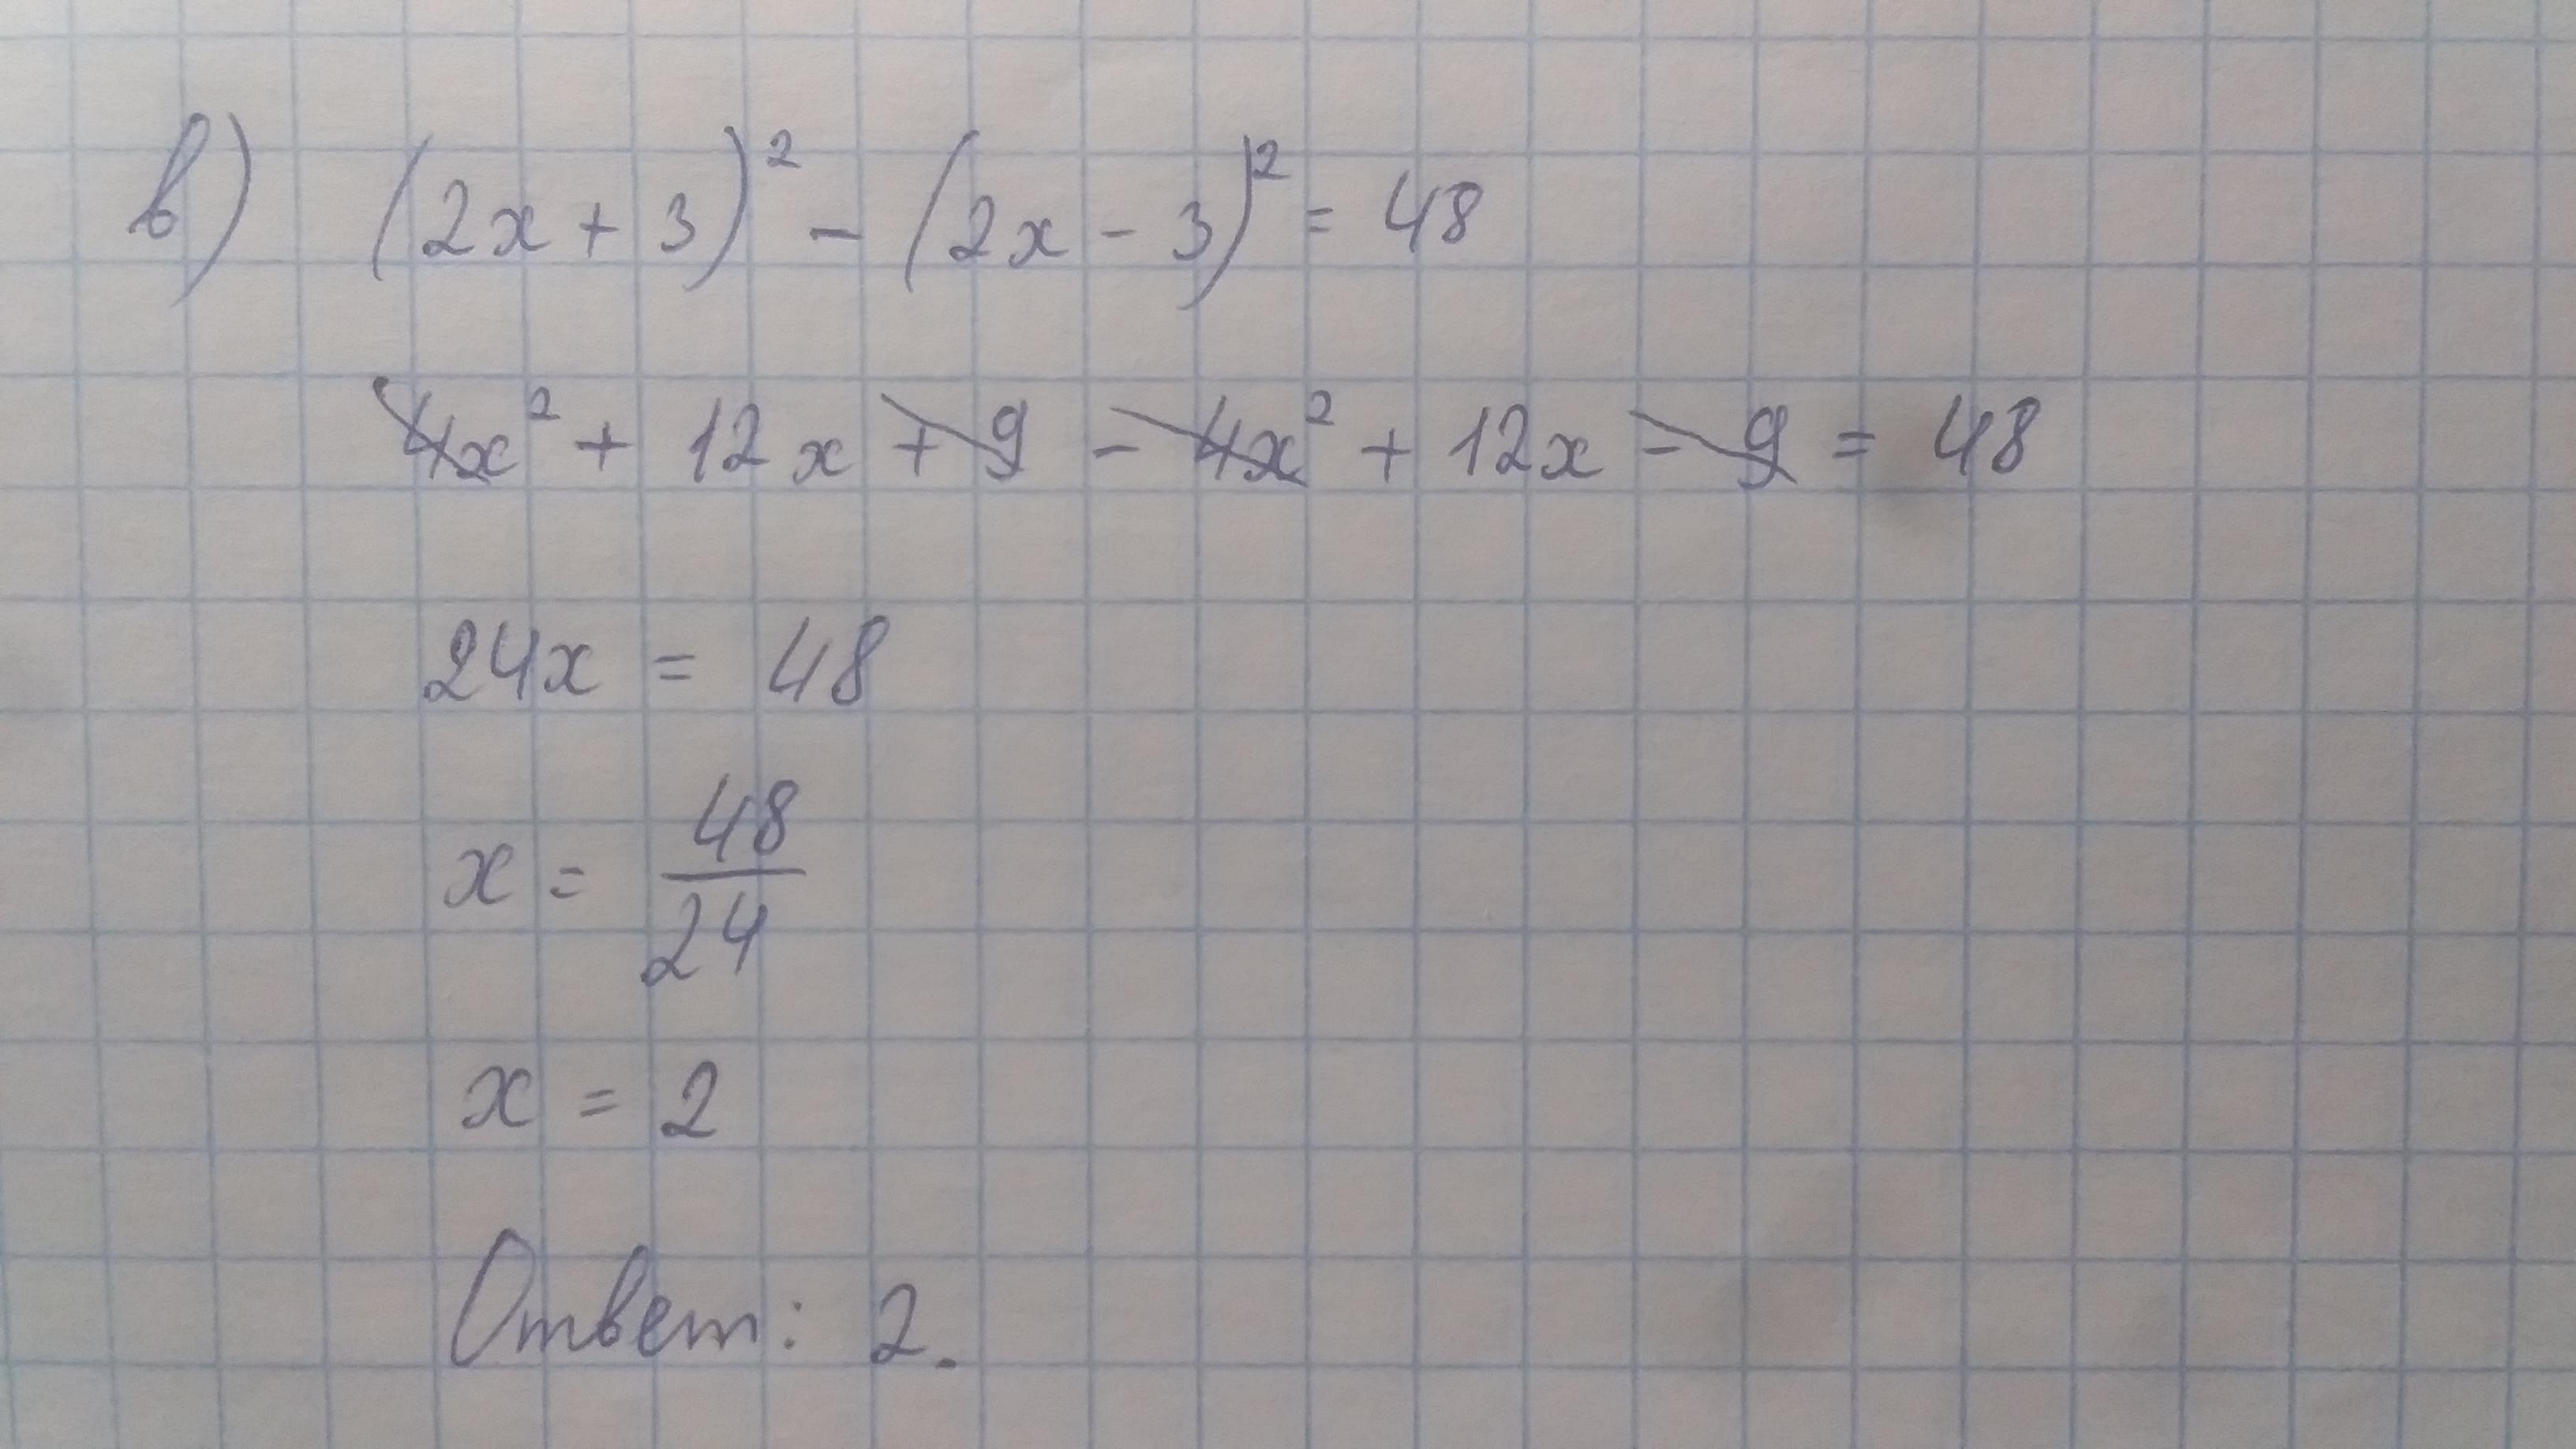 в) (2x + 3)² - (2x - 3)² = 48
4x² + 12x + 9 - 4x² + 12x - 9 = 48
24x = 48
x = 48/24
x = 2
Ответ: 2.